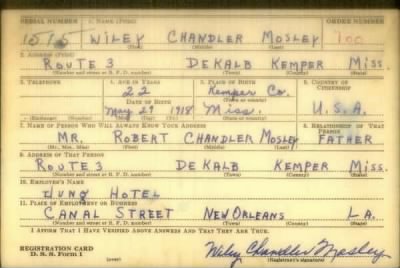 SERIAL NUMBER 1. NAME (Print) ORDER NUMBER
1515 WILEY CHANDLER MOSLEY 700
(First) (Middle) (Last)
2. ADDRESS (Print)
ROUTE 3 DEKALB KEMPER MISS.
(Number and street or R. F. D. number) (Town) (County) (State)
3. TELEPHONE 4. AGE IN YEARS 5. PLACE OF BIRTH 6. COUNTRY OF CITIZENSHIP
22 Kemper Co.
DATE OF BIRTH (Town or county)
May 29 1918 Miss. U.S.A.
(Exchange) (Number) (Mo.) (Day) (Yr.) (State or country)
7. NAME OF PERSON WHO WILL ALWAYS KNOW YOUR ADDRESS 8. RELATIONSHIP OF THAT PERSON
MR. ROBERT CHANDLER MOSLEY FATHER
(Mr., Mrs., Miss) (First) (Middle) (Last)
9. ADDRESS OF THAT PERSON
ROUTE 3 DEKALB KEMPER MISS.
(Number and street or R. F. D. number) (Town) (County) (State)
10. EMPLOYER'S NAME
JUNG HOTEL
11. PLACE OF EMPLOYMENT OR BUSINESS
CANAL STREET NEW ORLEANS LA.
(Number and street or R. F. D. number) (Town) (County) (State)
I AFFIRM THAT I HAVE VERIFIED ABOVE ANSWERS AND THAT THEY ARE TRUE.
REGISTRATION CARD
D. S. S. Form 1 (over) Wiley Chandler Mosley
(Registrant's signature)